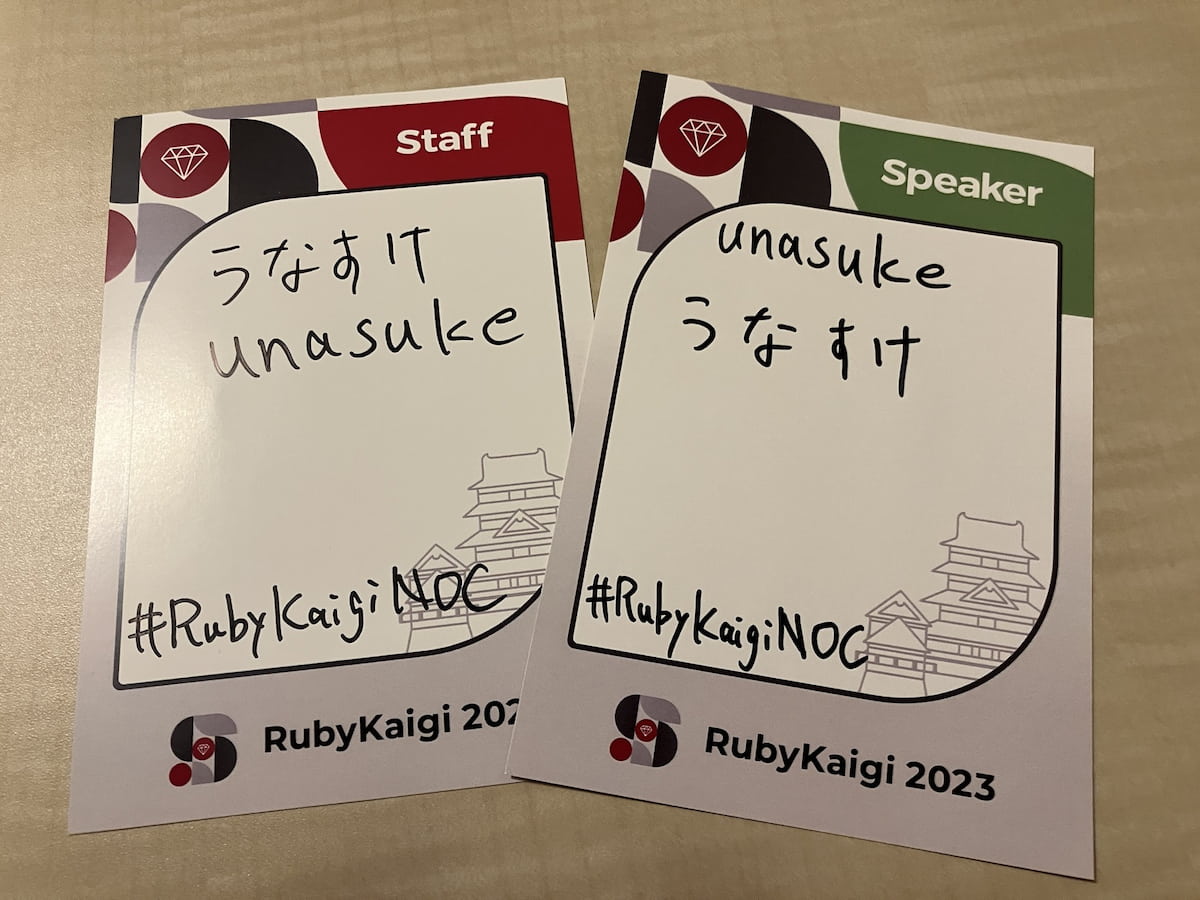 Staff
うなすけ
unasuke
#RubyKaigiNOC
RubyKaigi 202
Speaker
unasuke
うなすけ
#RubyKaigiNOC
RubyKaigi 2023